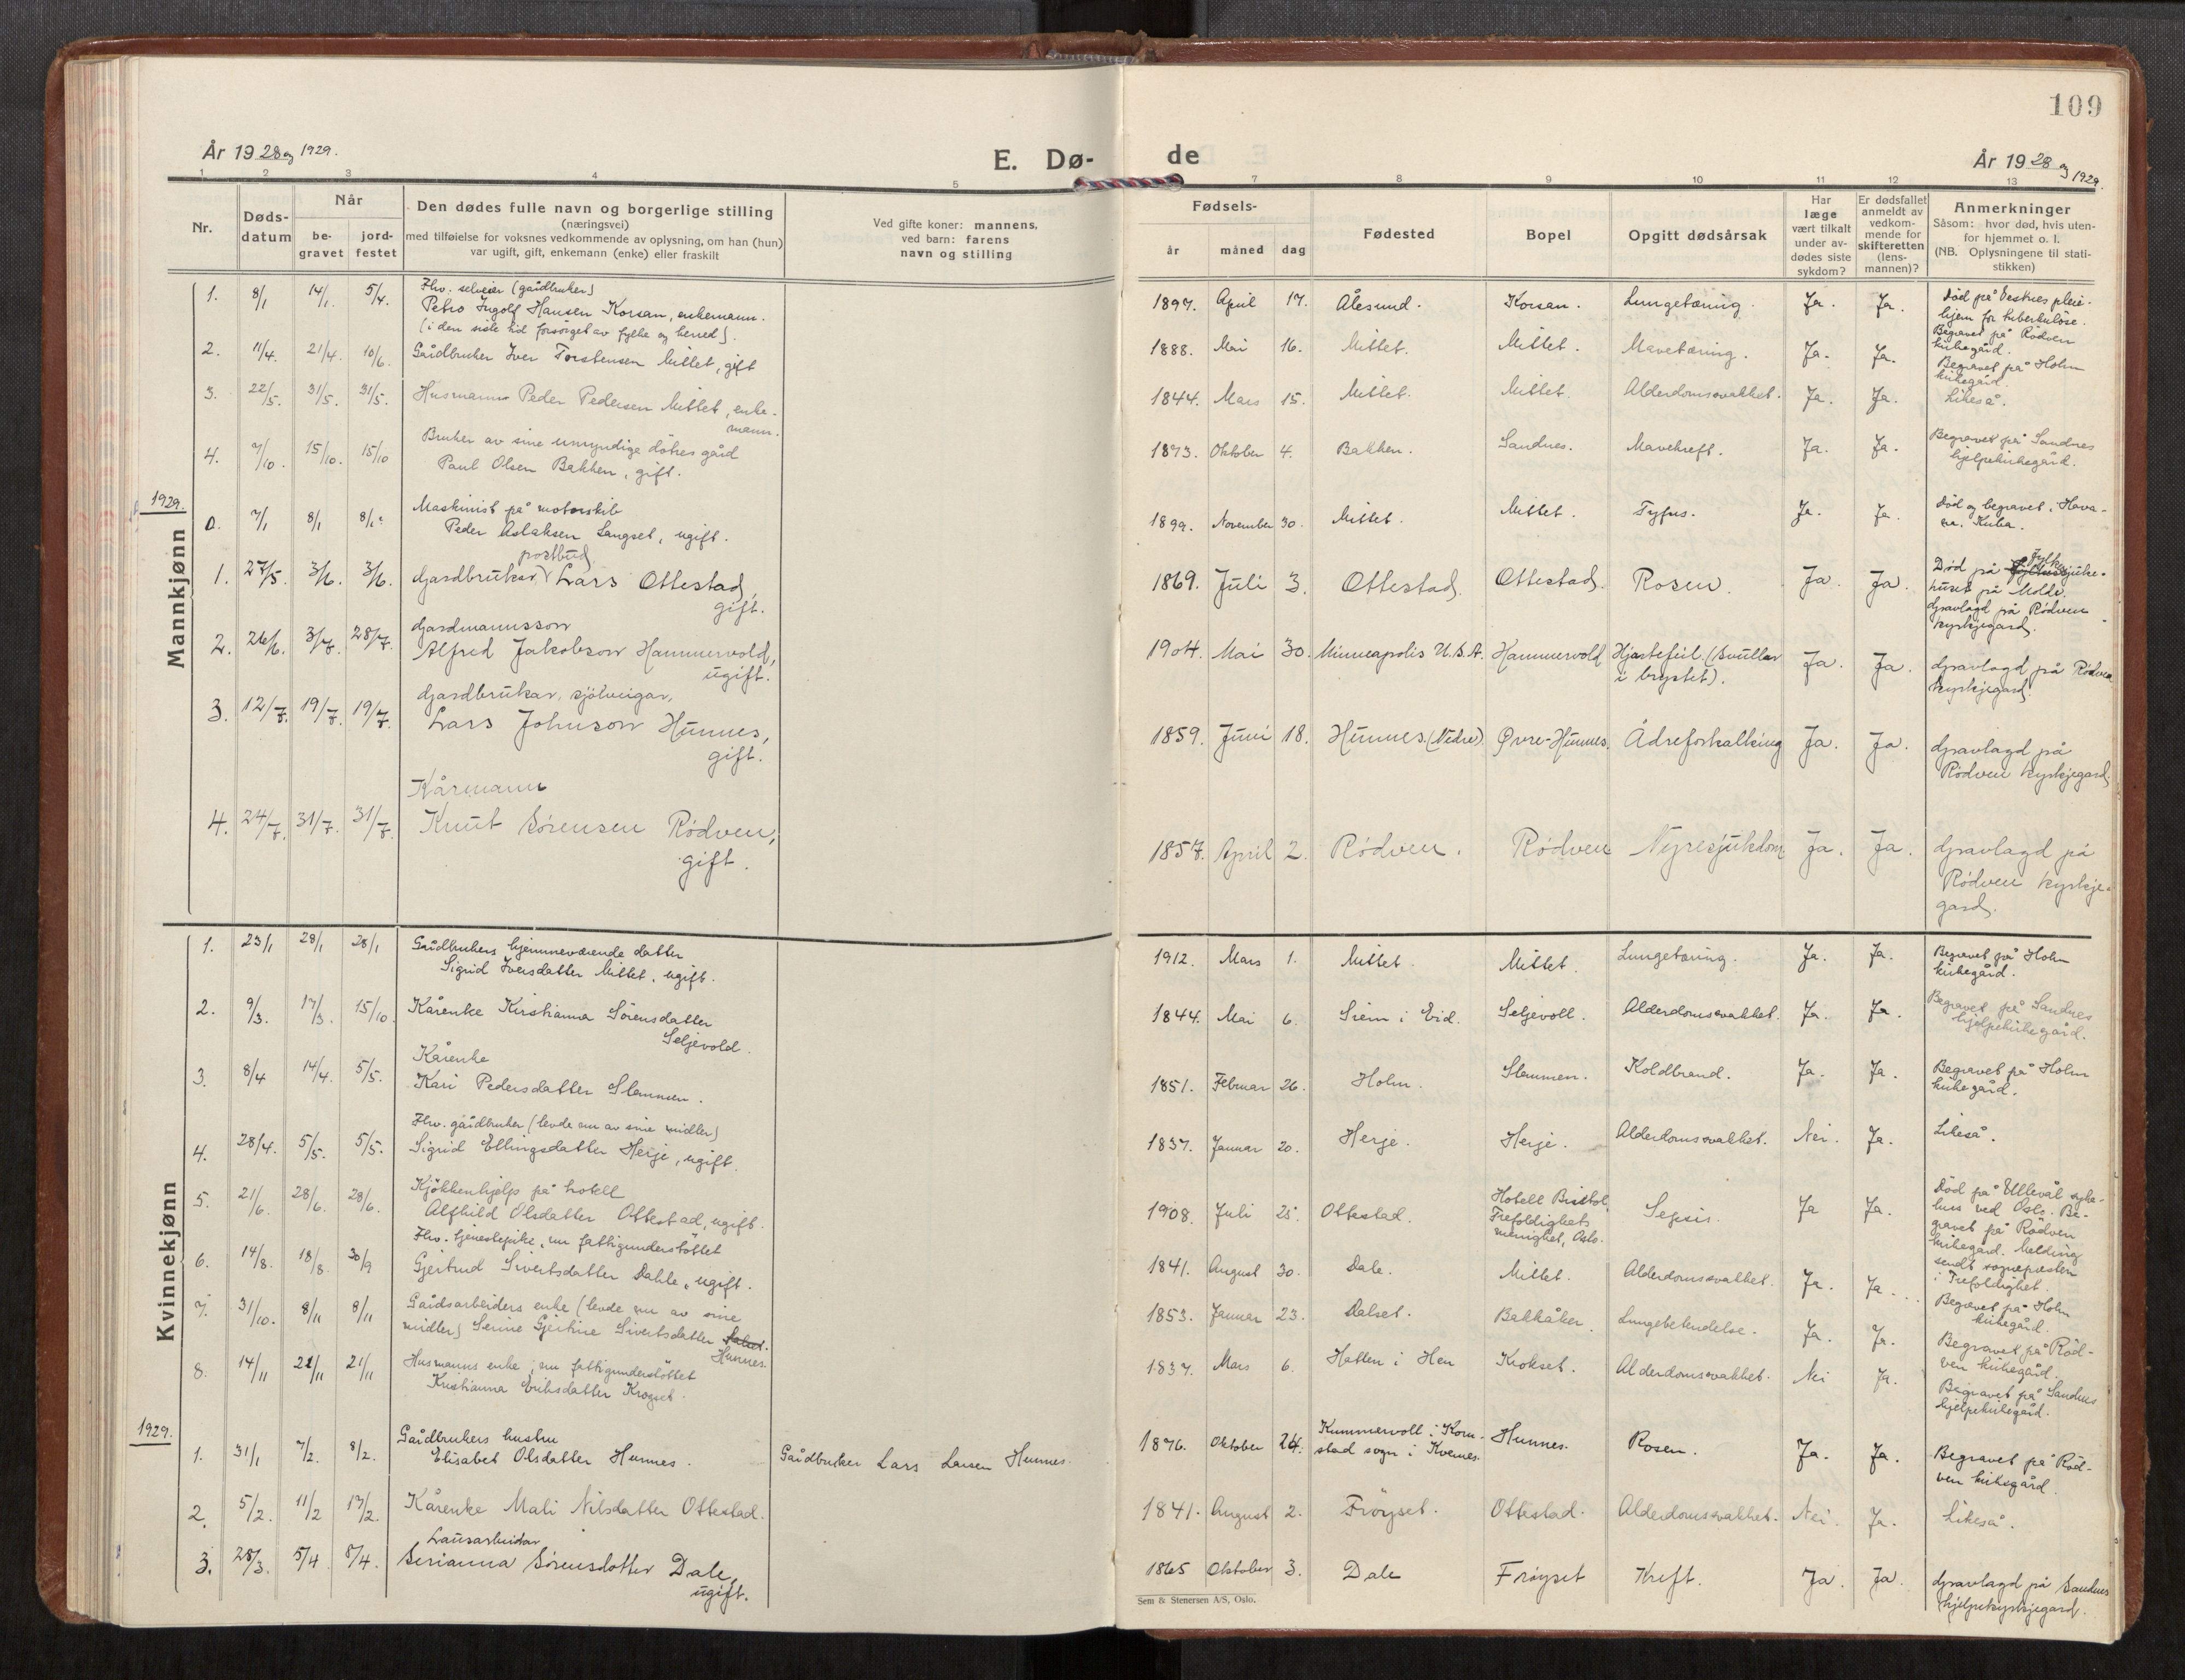 109
År 1928 og 1929.
E. Dø-
de
År 1928 og 1929.
1 2 3 4 5 7 8 9 10 11 12 13
Nr.
Døds-
datum
Når
be-
gravet
jord-
festet
Den dødes fulle navn og borgerlige stilling
(næringsvei)
med tilføielse for voksnes vedkommende av oplysning, om han (hun)
var ugift, gift, enkemann (enke) eller fraskilt
Ved gifte koner: mannens,
ved barn: farens
navn og stilling
Fødsels-
år måned dag
Fødested
Bopel
Opgitt dødsårsak
Har
læge
vært tilkalt
under av-
dødes siste
sykdom?
Er dødsfallet
anmeldt av
vedkom-
mende for
skifteretten
(lens-
mannen)?
Anmerkninger
Såsom: hvor død, hvis uten-
for hjemmet o. l.
(NB. Oplysningene til stati-
stikken)
Mannkjønn
1. 8/1 14/1. 5/4. Fhv. selveier (gårdbruker)
Petro Ingolf Hansen Korsan, enkemann.
(i den siste tid forsørget av fylke og herred).
1897. April 17. Ålesund. Korsan. Lungetæring. Ja. Ja. Død på Vestnes pleie-
hjem for tuberkuløse.
Begravet på Rödven
kirkegård.
2. 11/4. 21/4. 10/6. Gårdbruker Iver Torstensen Mittet, gift
1888. Mai 16. Mittet. Mittet. Mavetæring. Ja. Ja. Begravet på Holm
kirkegård.
3. 22/5. 31/5. 31/5. Husmann Peder Pedersen Mittet, enke-
mann.
1844. Mars 15. Mittet. Mittet. Alderdomssvakhet. Ja. Ja. Likeså.
4. 7/10. 15/10. 15/10 Bruker av sine umyndige döttres gård
Paul Olsen Bakken, gift.
1873. Oktober 4. Bakken. Sandnes. Mavekreft. Ja. Ja. Begravet på Sandnes
hjelpekirkegård.
1929.
0. 7/1 8/1 8/1? Maskinist på motorskib
Peder Aslaksen Langset, ugift.
1899. November 30. Mittet. Mittet. Tyfus. Ja. Ja. Död og begravet i Hava-
na. Kuba.
1. 27/5. 3/6. 3/6. Gardbrukar, postbud Lars Ottestad,
gift.
1869. Juli 3. Ottestad. Ottestad. Rosen. Ja. Ja. Død på Fylkessjuke-
huset på Molde.
Gravlagd på Rødven
kyrkjegard.
2. 26/6. 3/7. 28/7. Gardmannsson
Alfred Jakobson Hammervold,
ugift.
1904. Mai 30. Minneapolis U.S.A. Hammervold Hjartefeil (Svullar
i brystet). Ja. Ja. Gravlagd på Rødven
kyrkjegard
3. 12/7. 19/7. 19/7. Gardbrukar, sjølveigar,
Lars Johnson Hunnes,
gift.
1859. Juni 18. Hunnes (Nedre) Øvre-Hunnes. Ådreforkalking Ja. Ja. Gravlagd på
Rødven kyrkjegard,
4. 24/7. 31/7. 31/7. Kårmann
Knut Sørensen Rödven,
gift.
1857. April 2. Rødven. Rødven Nyresjukdom Ja. Ja. Gravlagd på
Rødven kyrkje-
gard.
Kvinnekjønn
1. 23/1 28/1 28/1 Gårdbrukers hjemmeværende datter
Sigrid Iversdatter Mittet, ugift.
1912. Mars 1. Mittet. Mittet. Lungetæring. Ja. Ja. Begravet på Holm
kirkegård.
2. 9/3. 17/3. 15/10. Kårenke Kristianna Sörensdatter
Seljevold.
1844. Mai 6. Siem i Eid. Seljevoll. Alderdomssvakhet. Ja. Ja. Begravet på Sandnes
hjelpekirkegård.
3. 8/4 14/4. 5/5. Kårenke
Kari Pedersdatter Slemmen.
1851. Februar 26. Holm. Slemmen. Koldbrand. Ja. Ja. Begravet på Holm
kirkegård.
4. 28/4. 5/5. 5/5. Fhv. gårdbruker (levde nu av sine midler)
Sigrid Ellingsdatter Herje, ugift.
1837. Januar 20. Herje. Herje. Alderdomssvakhet. Nei. Ja. Likeså.
5. 21/6 28/6. 28/6. Kjökkenhjelp på hotell
Alfhild Olsdatter Ottestad, ugift.
1908. Juli 25. Ottestad. Hotell Bristol,
Trefoldighets
menighet, Oslo. Sepsis. Ja Ja. Död på Ullevål syke-
hus ved Oslo. Be-
gravet på Rödven
kirkegård. Melding
sendt sognepresten
i Trefoldighet.
6. 14/8. 18/8. 30/9 Fhv. tjenestepike, nu fattigunderstöttet
Gjertrud Sivertsdatter Dahle, ugift.
1841. August 30. Dale. Mittet. Alderdomssvakhet. Ja. Ja. Begravet på Holm
kirkegård.
7. 31/10. 8/11 8/11 Gårdsarbeiders enke (levde nu av sine
midler) Serine Gjertine Sivertsdatter
Hunnes.
1853. Januar 23. Dalset. Bakkåker. Lungebetendelse. Ja. Ja. Begravet på Röd-
ven kirkegård.
8. 14/11 21/11 21/11 Husmanns enke, nu fattigunderstöttet
Kristianna Eriksdatter Krogset.
1837. Mars 6. Hatlen i Hen Krokset. Alderdomssvakhet. Nei Ja. Begravet på Sandnes
hjelpekirkegård.
1929.
1. 31/1 7/2. 8/2. Gårdbrukers hustru
Elisabet Olsdatter Hunnes. Gårdbruker Lars Larsen Hunnes.
1876. Oktober 24. Kummervoll i Korn-
stad sogn i Kvernes. Hunnes. Rosen. Ja. Ja. Begravet på Röd-
ven kirkegård.
2. 5/2. 11/2 17/2. Kårenke Mali Nilsdatter Ottestad.
1841. August 2. Fröyset. Ottestad. Alderdomssvakhet. Nei. Ja. Likeså.
3. 28/3. 5/4. 8/4. Lausarbeidar
Serianna Sørensdotter Dale,
ugift.
1865 Oktober 3. Dale Frøyset Kreft. Ja. Ja. Gravlagd på Sandnes
hjelpekyrkjegard.
Sem & Stenersen A/S, Oslo.